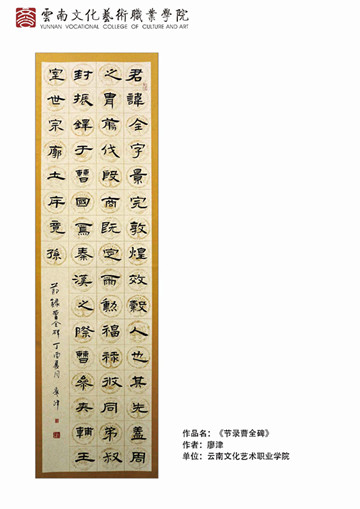 雲南文化藝術職業學院
YUNNAN VOCATIONAL COLLEGE OF CULTURE AND ART
君諱全字景完敦煌效穀人也其先蓋周
之胄武伐殷商既定爾勲福祿攸同弟叔
封振鐸于曹國焉秦漢之際曹參夾輔王
室世宗廓土斥竟孫
節錄曹全碑
廖津
作品名：《节录曹全碑》
作者：廖津
单位：云南文化艺术职业学院